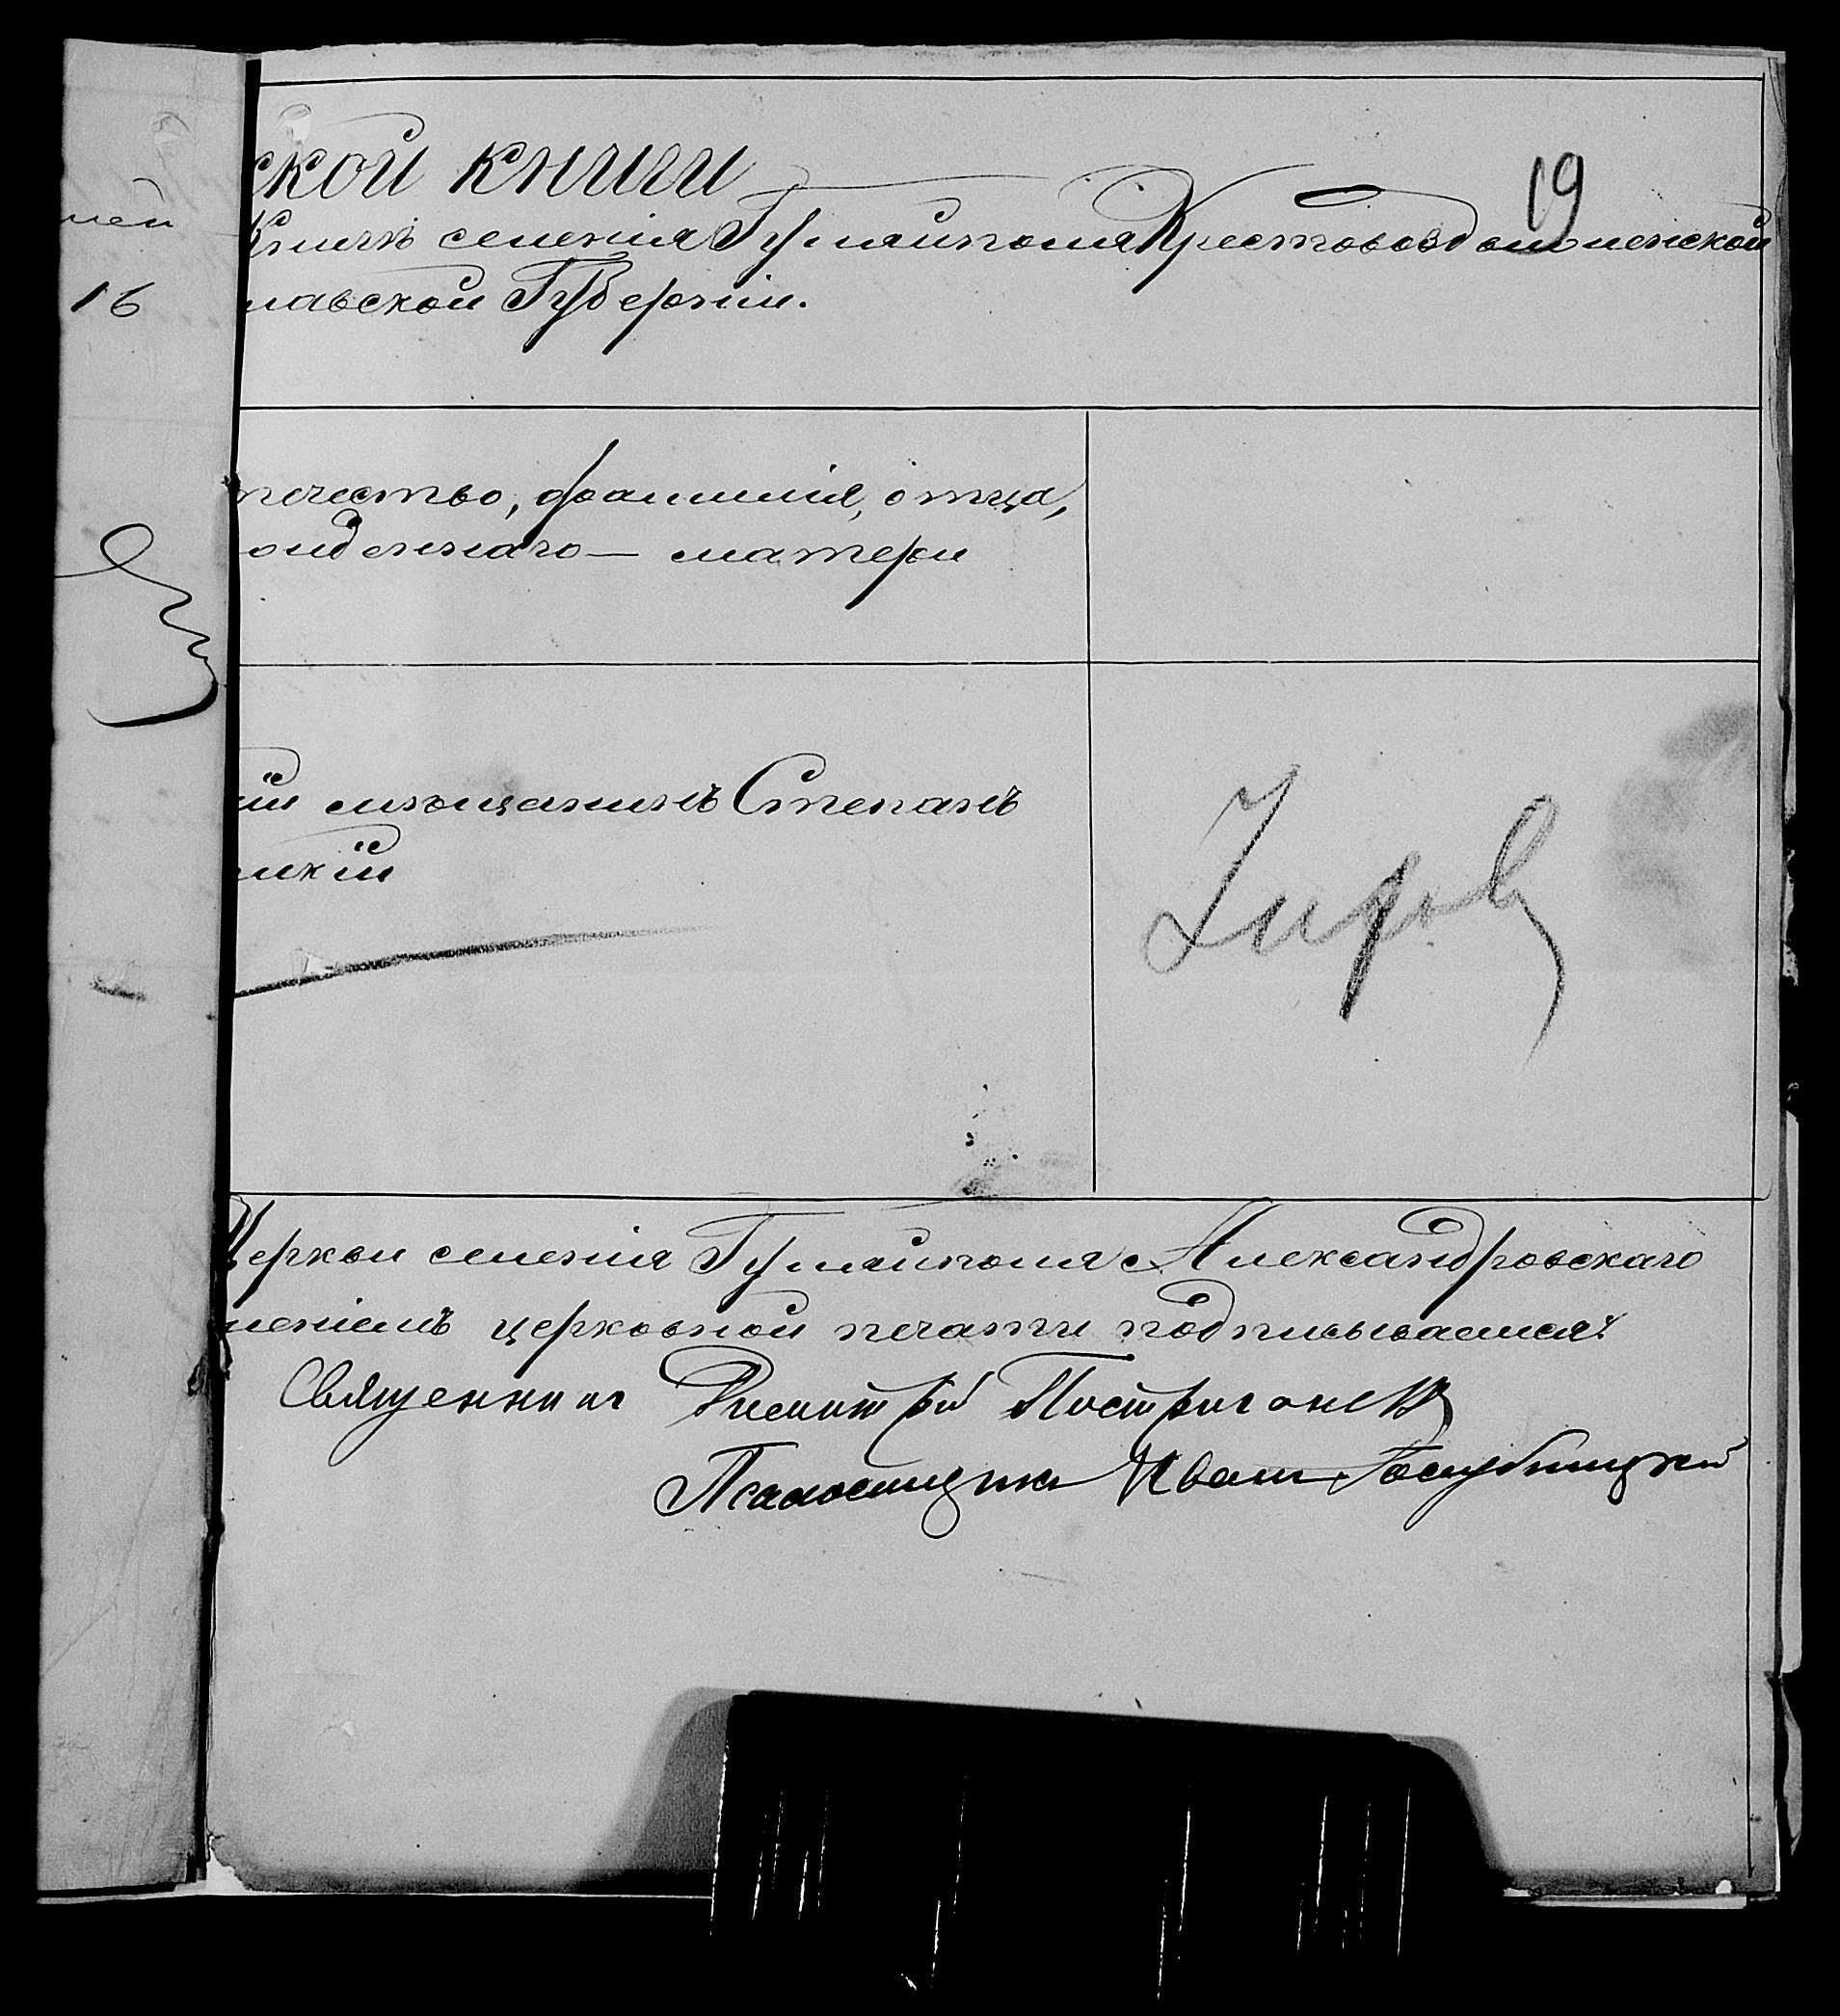 ской книги
19
Книгѣ селенія Гуляйполя Крестовоздвиженской
лавской Губерніи.
16
течество, фамилія, отца,
ожденнаго — матери
ій мѣщанинъ Степанъ
цкій
Церкви селенія Гуляйполя Александровскаго
женіемъ церковной печати подписываемся:
Священник Димитрій
Псаломщикъ Иванъ Голубницкій